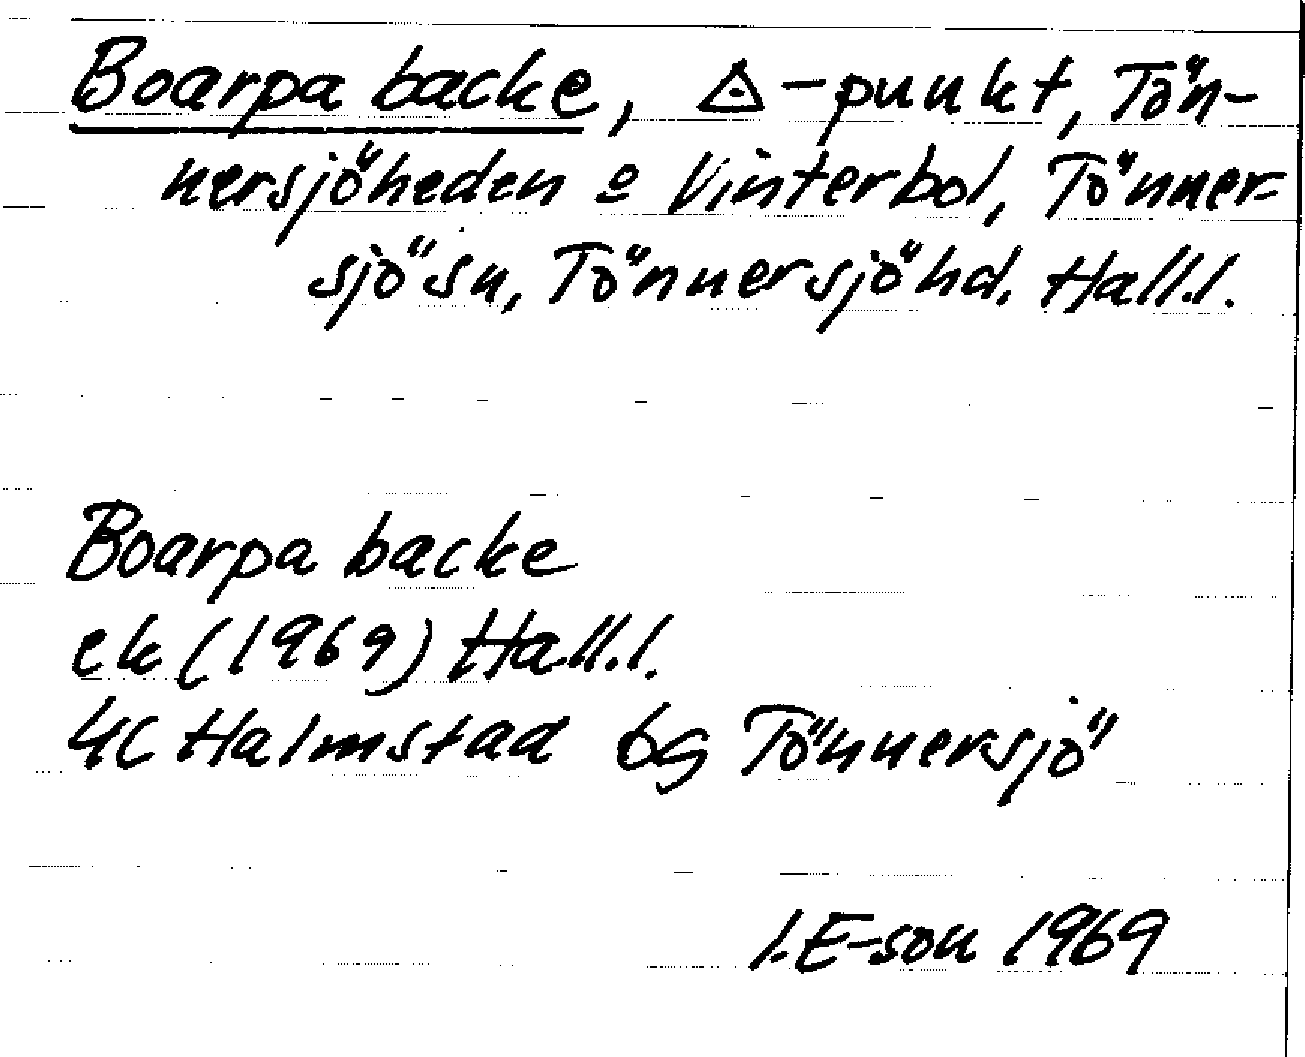 Boarpa backe, ◬-punkt, Tön-
nersjöheden o Vinterbol, Tönner-
sjö sn, Tönnersjö hd. Hall.l.
Boarpa backe
ek (1969) Hall.l.
4C Halmstad 6g Tönnersjö
I.E-son 1969